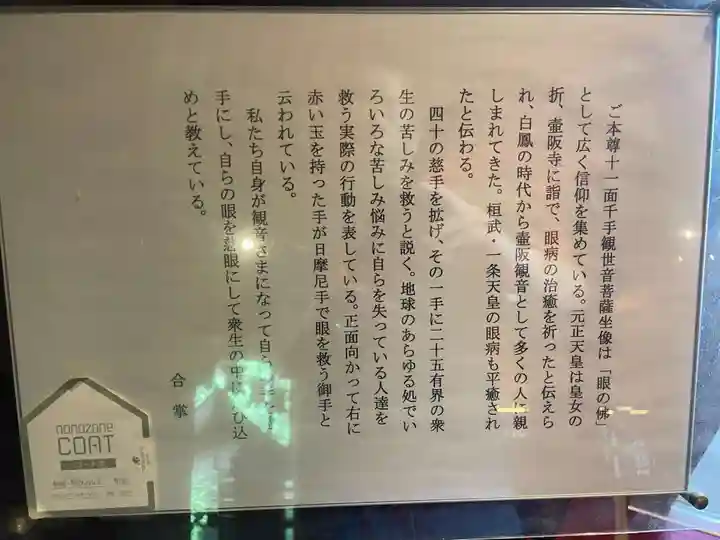 ご本尊十一面千手観世音菩薩坐像は「眼の佛」
として広く信仰を集めている。元正天皇は皇女の
折、壷阪寺に詣で、眼病の治癒を祈ったと伝えら
れ、白鳳の時代から壷阪観音として多くの人に親
しまれてきた。桓武・一条天皇の眼病も平癒され
たと伝わる。
四十の慈手を拡げ、その一手に二十五有界の衆
生の苦しみを救うと説く。地球のあらゆる処でい
ろいろな苦しみ悩みに自らを失っている人達を
救う実際の行動を表している。正面向かって右に
赤い玉を持った手が日摩尼手で眼を救う御手と
云われている。
私たち自身が観音さまになって自ら
手にし、自らの眼を慈眼にして衆生の中に ひ込
めと教えている。
合掌
nanozone
COAT